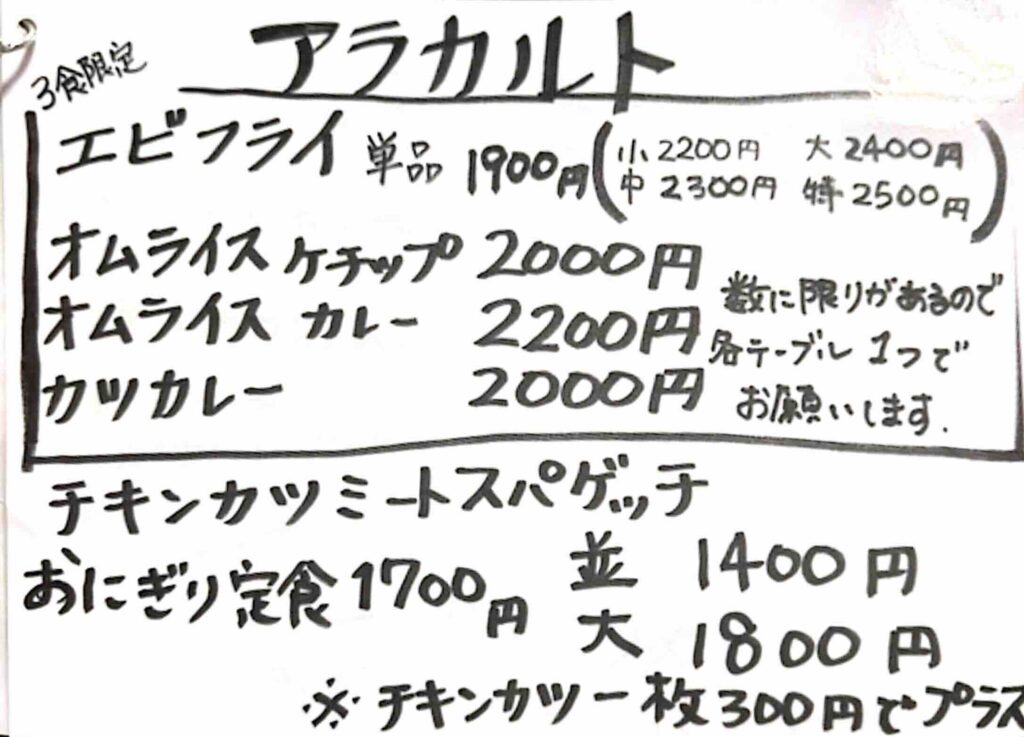 アラカルト
3食限定
エビフライ 単品 1900円 (小2200円 大2400円
中2300円 特2500円)
オムライス ケチップ 2000円
オムライス カレー 2200円
カツカレー 2000円
数に限りがあるので
各テーブル 1つで
お願いします.
チキンカツミートスパゲッチ
並 1400円
大 1800円
おにぎり定食1700円
※チキンカツ一枚300円でプラス